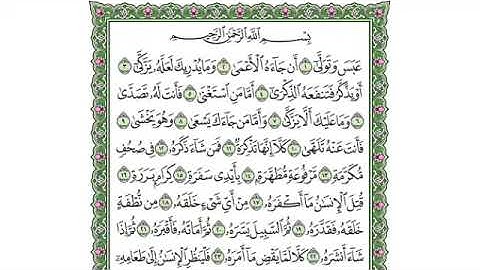 بِسْمِ اللَّهِ الرَّحْمَٰنِ الرَّحِيمِ
عَبَسَ وَتَوَلَّىٰٓ ١ أَن جَآءَهُ ٱلْأَعْمَىٰ ٢ وَمَا يُدْرِيكَ لَعَلَّهُۥ يَزَّكَّىٰٓ ٣
أَوْ يَذَّكَّرُ فَتَنفَعَهُ ٱلذِّكْرَىٰٓ ٤ أَمَّا مَنِ ٱسْتَغْنَىٰ ٥ فَأَنتَ لَهُۥ تَصَدَّىٰ
٦ وَمَا عَلَيْكَ أَلَّا يَزَّكَّىٰ ٧ وَأَمَّا مَن جَآءَكَ يَسْعَىٰ ٨ وَهُوَ يَخْشَىٰ ٩
فَأَنتَ عَنْهُ تَلَهَّىٰ ١٠ كَلَّآ إِنَّهَا تَذْكِرَةٌ ١١ فَمَن شَآءَ ذَكَرَهُۥ ١٢ فِى صُحُفٍ
مُّكَرَّمَةٍ ١٣ مَّرْفُوعَةٍ مُّطَهَّرَةٍۭ ١٤ بِأَيْدِى سَفَرَةٍ ١٥ كِرَامٍۭ بَرَرَةٍ ١٦
قُتِلَ ٱلْإِنسَٰنُ مَآ أَكْفَرَهُۥ ١٧ مِنْ أَىِّ شَىْءٍ خَلَقَهُۥ ١٨ مِن نُّطْفَةٍ
خَلَقَهُۥ فَقَدَّرَهُۥ ١٩ ثُمَّ ٱلسَّبِيلَ يَسَّرَهُۥ ٢٠ ثُمَّ أَمَاتَهُۥ فَأَقْبَرَهُۥ ٢١ ثُمَّ إِذَا
شَآءَ أَنشَرَهُۥ ٢٢ كَلَّا لَمَّا يَقْضِ مَآ أَمَرَهُۥ ٢٣ فَلْيَنظُرِ ٱلْإِنسَٰنُ إِلَىٰ طَعَامِهِۦٓ